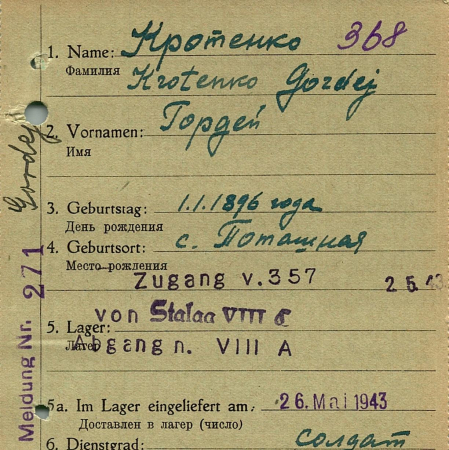 1. Name: Кротенко 368
Фамилия Krotenko Gordej
2. Vornamen: Гордей
Имя
Gordej
3. Geburtstag: 1.1.1896 года
День рождения
4. Geburtsort: с. Поташная
Место рождения
Zugang v. 357 2 5. 43
von Stalag VIII C
5. Lager:
Лагер
Abgang n. VIII A
Meldung Nr. 271
5a. Im Lager eingeliefert am: 26. Mai 1943
Доставлен в лагер (число)
6. Dienstgrad: солдат